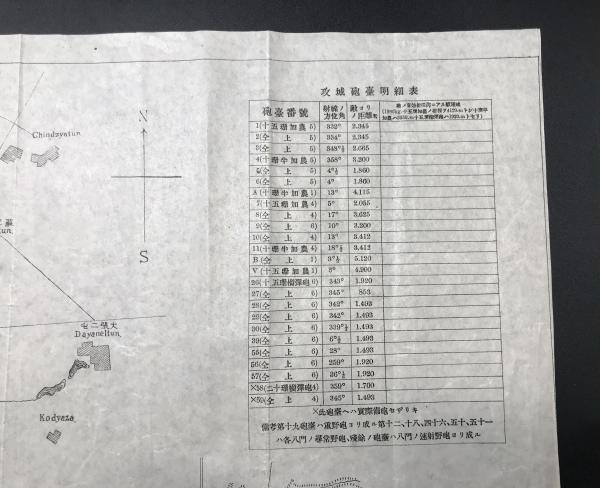 攻城砲臺明細表
砲臺番號 射線ノ方位角 敵ヨリノ距離
1(十五珊加農 5) 332° 2.345
2(仝 上 5) 334° 2.345
3(仝 上 5) 2.665
4(十珊半加農 5) 358° 3.200
5(仝 上 5) 4°½ 1.860
6(仝 上 5) 4° 1.860
A(十珊半加農 1) 13° 4.115
7(十五珊加農 4) 5° 2.055
8(仝 上 4) 17° 3.625
9(仝 上 6) 10° 3.200
10(仝 上 4) 13° 3.412
11(十珊半加農 4) 18°½ 3.412
B(仝 上 1) 3°½ 5.120
V(十五珊加農 1) 3° 4.900
26(十五珊榴彈砲 6) 343° 1.920
27(仝 上 6) 345° 853
28(仝 上 6) 342° 1.493
29(仝 上 6) 342° 1.493
30(仝 上 6) 339°½ 1.493
39(仝 上 6) 6°½ 1.493
55(仝 上 6) 28° 1.493
56(仝 上 6) 259° 1.920
57(仝 上 6) 36°½ 1.920
×58(二十珊榴彈砲 4) 359° 1.700
×59(仝 上 4) 345° 1.493
×此砲臺ヘハ實際備砲セザリキ
備考第十九砲臺ハ重野砲ヨリ成ル第十二、十八、四十六、五十、五十一
ハ各八門ノ尋常野砲、殘餘ノ砲臺ハ八門ノ速射野砲ヨリ成ル
N
S
Chindzyatun
tun
大號二屯
Dayaneltun
Kodyaza